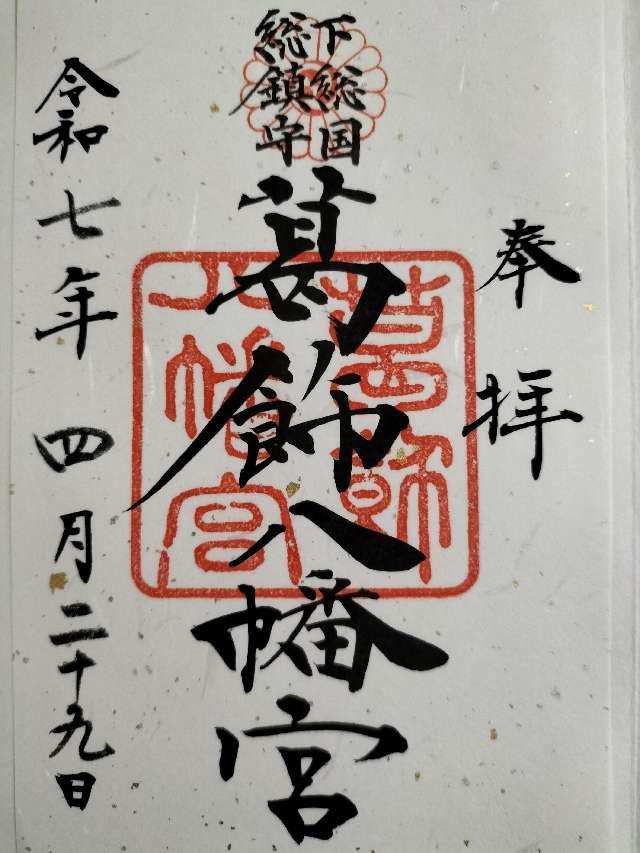 奉拝
下総国
総鎮守
葛飾八幡宮
葛飾
八幡宮
令和七年四月二十九日